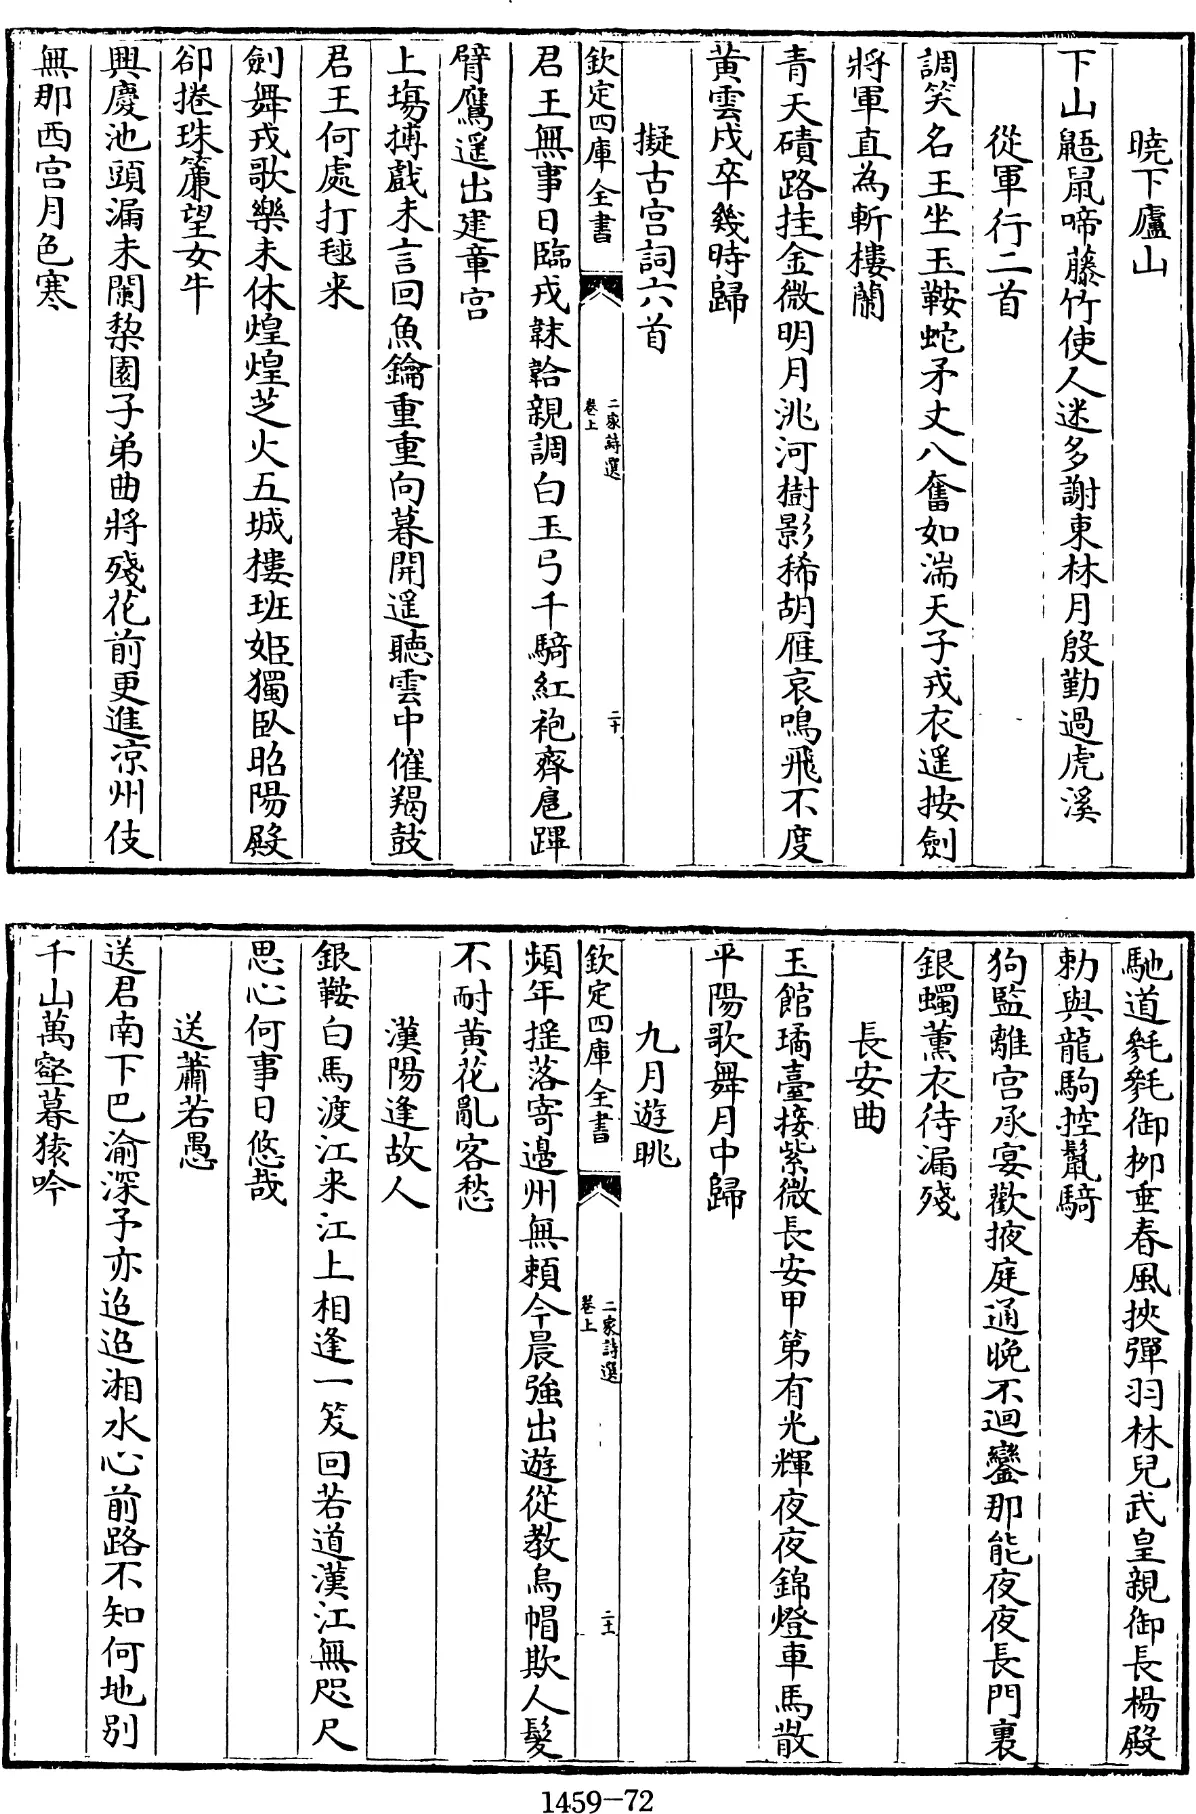 曉下廬山
下山鼯鼠啼藤竹使人迷多謝東林月殷勤過虎溪
從軍行二首
調笑名王坐玉鞍蛇矛丈八奮如湍天子戎衣遥按劍
將軍直為斬樓蘭
青天磧路挂金微明月洮河樹影稀胡雁哀鳴飛不度
黄雲戍卒幾時歸
擬古宫詞六首
欽定四庫全書
二家詩選
卷上
二十
君王無事日臨戎韎韐親調白玉弓千騎紅袍齊扈蹕
臂鷹遥出建章宫
上塲搏戲未言回魚鑰重重向暮開遥聽雲中催羯鼓
君王何處打毬来
劍舞戎歌樂未休煌煌芝火五城樓班姬獨臥昭陽殿
卻捲珠簾望女牛
興慶池頭漏未闌棃園子弟曲將殘花前更進凉州伎
無那西宫月色寒
馳道毿毿御栁垂春風挾彈羽林兒武皇親御長楊殿
勅與龍駒控鬣騎
狗監離宫承宴歡掖庭通晚不迴鑾那能夜夜長門裏
銀蠋薰衣待漏殘
長安曲
玉館璚臺接紫微長安甲第有光輝夜夜錦燈車馬散
平陽歌舞月中歸
九月遊眺
欽定四庫全書
二家詩選
卷上
二十一
頻年揺落寄邉州無賴今晨強出遊從教烏帽欺人髮
不耐黄花亂客愁
漢陽逢故人
銀鞍白馬渡江来江上相逢一笑回若道漢江無咫尺
思心何事日悠哉
送蕭若愚
送君南下巴渝深予亦迢迢湘水心前路不知何地别
千山萬壑暮猿吟
1459-72